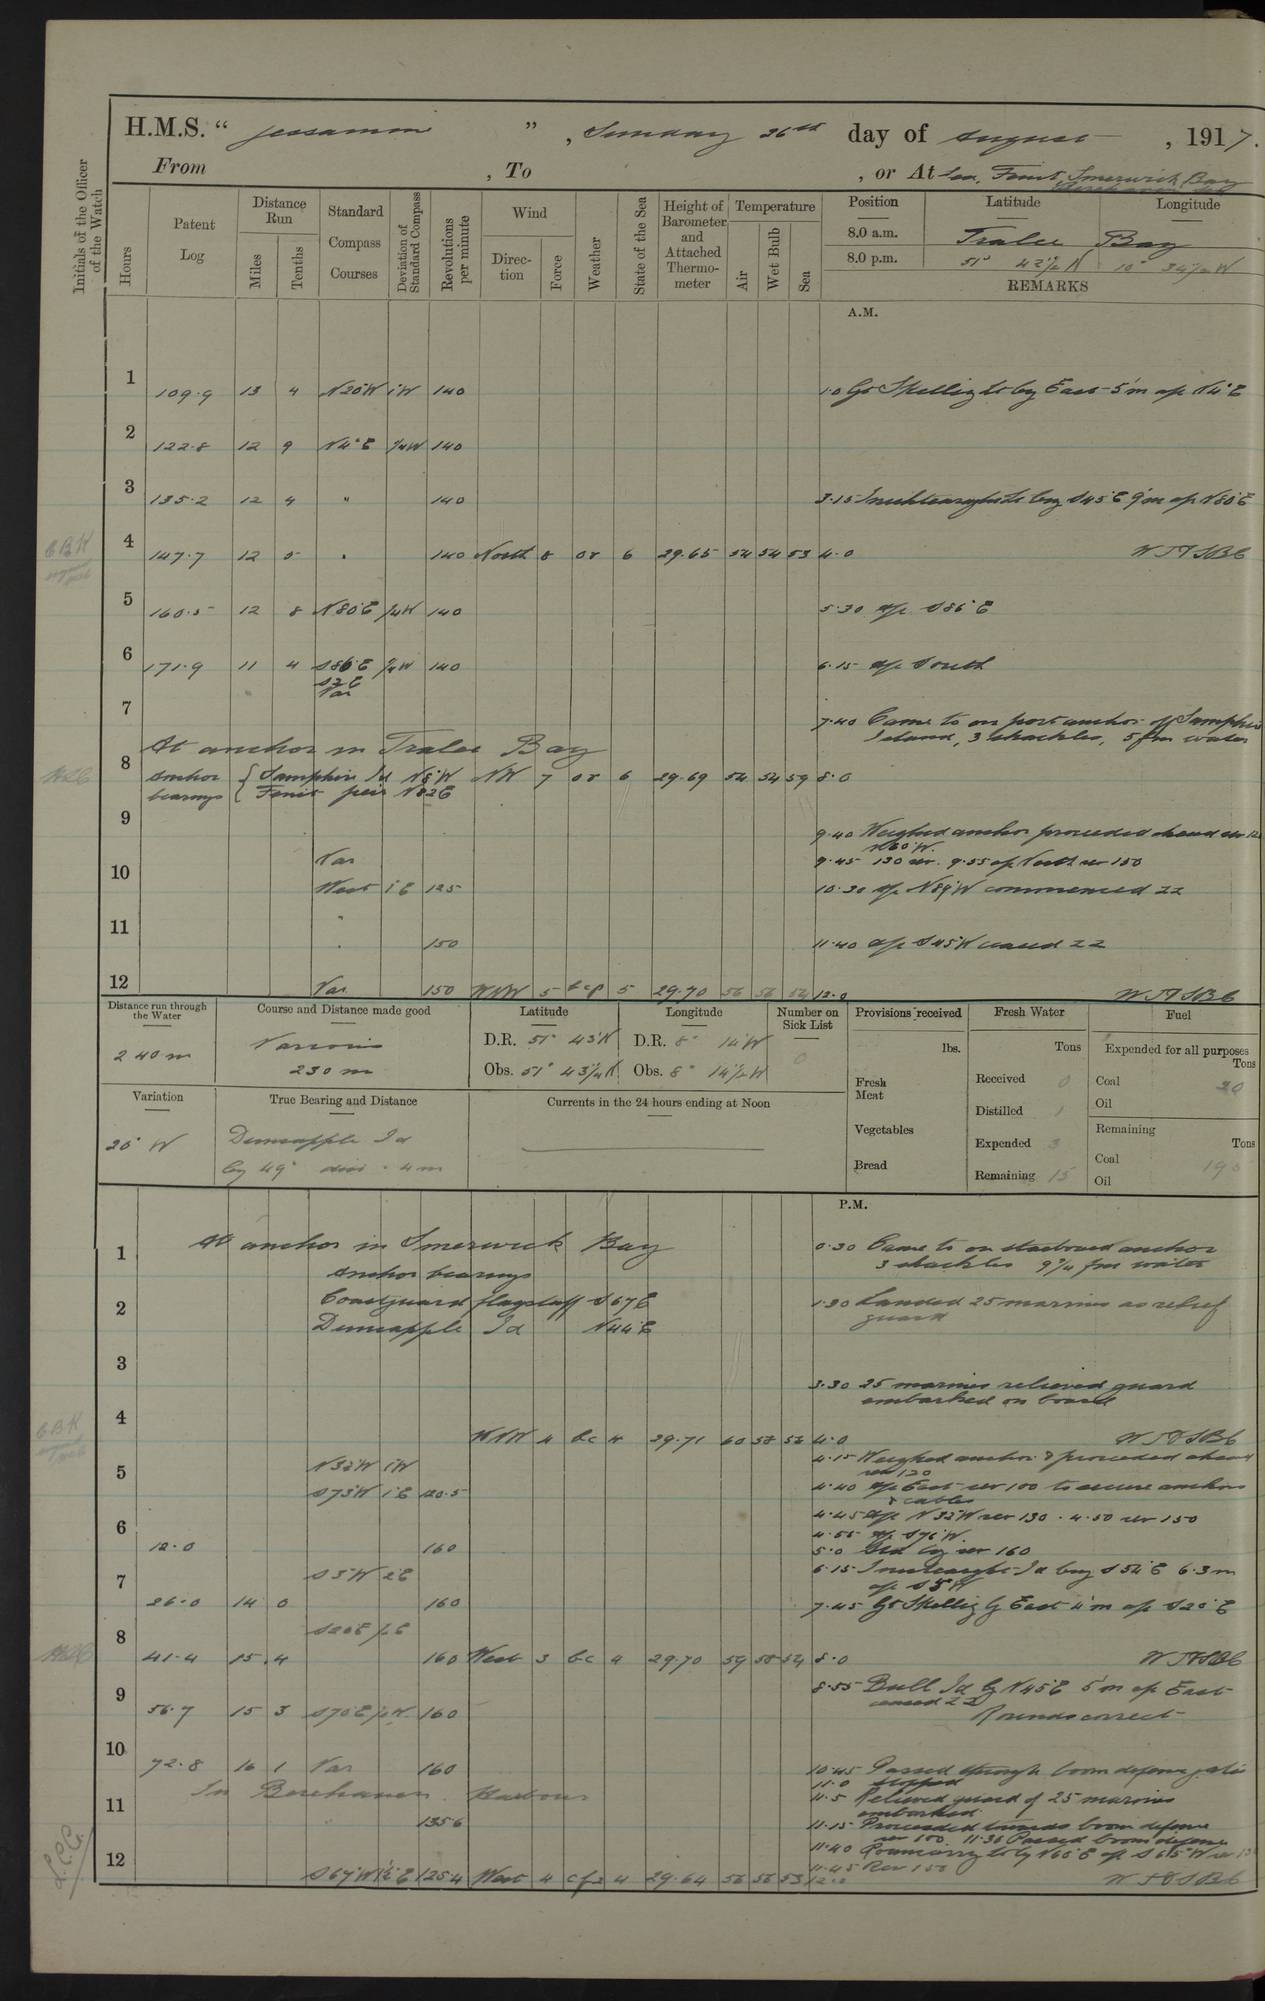 H.M.S. " Jessamine " , Sunday 26th day of August , 1917.
From , To , or At Sea, Fenit, Smerwick Bay
Initials of the Officer of the Watch
Hours
Patent Log
Distance Run
Miles
Tenths
Standard Compass Courses
Deviation of Standard Compass
Revolutions per minute
Wind
Direction
Force
Weather
State of the Sea
Height of Barometer and Attached Thermometer
Temperature
Air
Wet Bulb
Sea
Position Latitude Longitude
8.0 a.m. Tralee Bay
8.0 p.m. 51° 42½ N 10° 34½ W
REMARKS
A.M.
1 109.9 13 4 N20°W 1°W 140 1.0 Gt Skellig Lt bg East 5'm a/c N4°E
2 122.8 12 9 N4°E ¼W 140
3 135.2 12 4 " 140 3.15 Inishtearaght Lt bg S45°E 9'm a/c N80°E
4 147.7 12 5 " 140 North 8 or 6 29.65 54 54 53 4.0
5 160.5 12 8 N80°E ¼W 140 5.30 a/c S86°E
6 171.9 11 4 S86°E ¼W 140 6.15 a/c South
Var
7 7.40 Came to on port anchor off Samphire
Island, 3 shackles, 5 fm water
At anchor in Tralee Bay
8 Anchor bearings { Samphire Id N8°W NW 7 or 6 29.69 54 54 59 8.0
Fenit pier N82E
9 9.40 Weighed anchor proceeded ahead
N60°W.
9.45 130 rev. 9.55 a/c North rev 150
10 Var
West 1°E 125 10.30 a/c N89°W commenced ZZ
11 " 150 11.40 a/c S45°W ceased ZZ
12 Var 150 WNW 5 bcp 5 29.70 56 56 54 12.0
Distance run through the Water
240 m
Course and Distance made good
Various
230 m
Latitude
D.R. 51° 43'N
Obs. 51° 43½N
Longitude
D.R. 8° 14'W
Obs. 8° 14½W
Number on Sick List
0
Provisions received
lbs.
Fresh Meat
Vegetables
Bread
Fresh Water
Tons
Received 0
Distilled 1
Expended 3
Remaining 15
Fuel
Expended for all purposes
Tons
Coal 20
Oil
Remaining
Tons
Coal 195
Oil
Variation
20° W
True Bearing and Distance
Duneapple Id
bg 49° dist. 4m
Currents in the 24 hours ending at Noon
P.M.
At anchor in Smerwick Bay
1 0.30 Came to on starboard anchor
3 shackles 9¾ fm water
Anchor bearings
2 Coastguard flagstaff S67E 1.30 Landed 25 marines as relief
guard
Duneapple Id N44°E
3 3.30 25 marines relieved guard
embarked on board
4 WNW 4 bc 4 29.71 60 58 52 4.0
4.15 Weighed anchor & proceeded ahead
rev 120
5 N32°W 1°W
S73°W 1°E 120.5 4.40 a/c East rev 100 to secure anchors
& cables
4.45 a/c N32°W rev 130. 4.50 rev 150
4.55 a/c S76°W
6 12.0 160 5.0 Set log rev 160
6.15 Inishtearaght Id bg S54°E 6.3m
a/c S5°W
7 S5°W 2E
26.0 14 0 160 7.45 Gt Skellig bg East 4'm a/c S20°E
8 S20E ½E
41.4 15.4 160 West 3 bc 4 29.70 59 58 54 8.0
8.55 Bull Id bg N45°E 5'm a/c East
ceased ZZ
9 56.7 15 3 S70E 160 Rounds correct
10 72.8 16 1 Var 160 10.45 Passed through boom defence gates
11.0 stopped
In Berehaven Harbour
11 135.6 11.5 Relieved guard of 25 marines
embarked.
11.15 Proceeded towards boom defence
rev 100. 11.36 Passed boom defence
11.40 Roancarrig Lt bg N65°E a/c S65°W
11.45 Rev 150
12 S67°W 1½E 125.4 West 4 4 29.64 56 56 53 12.0